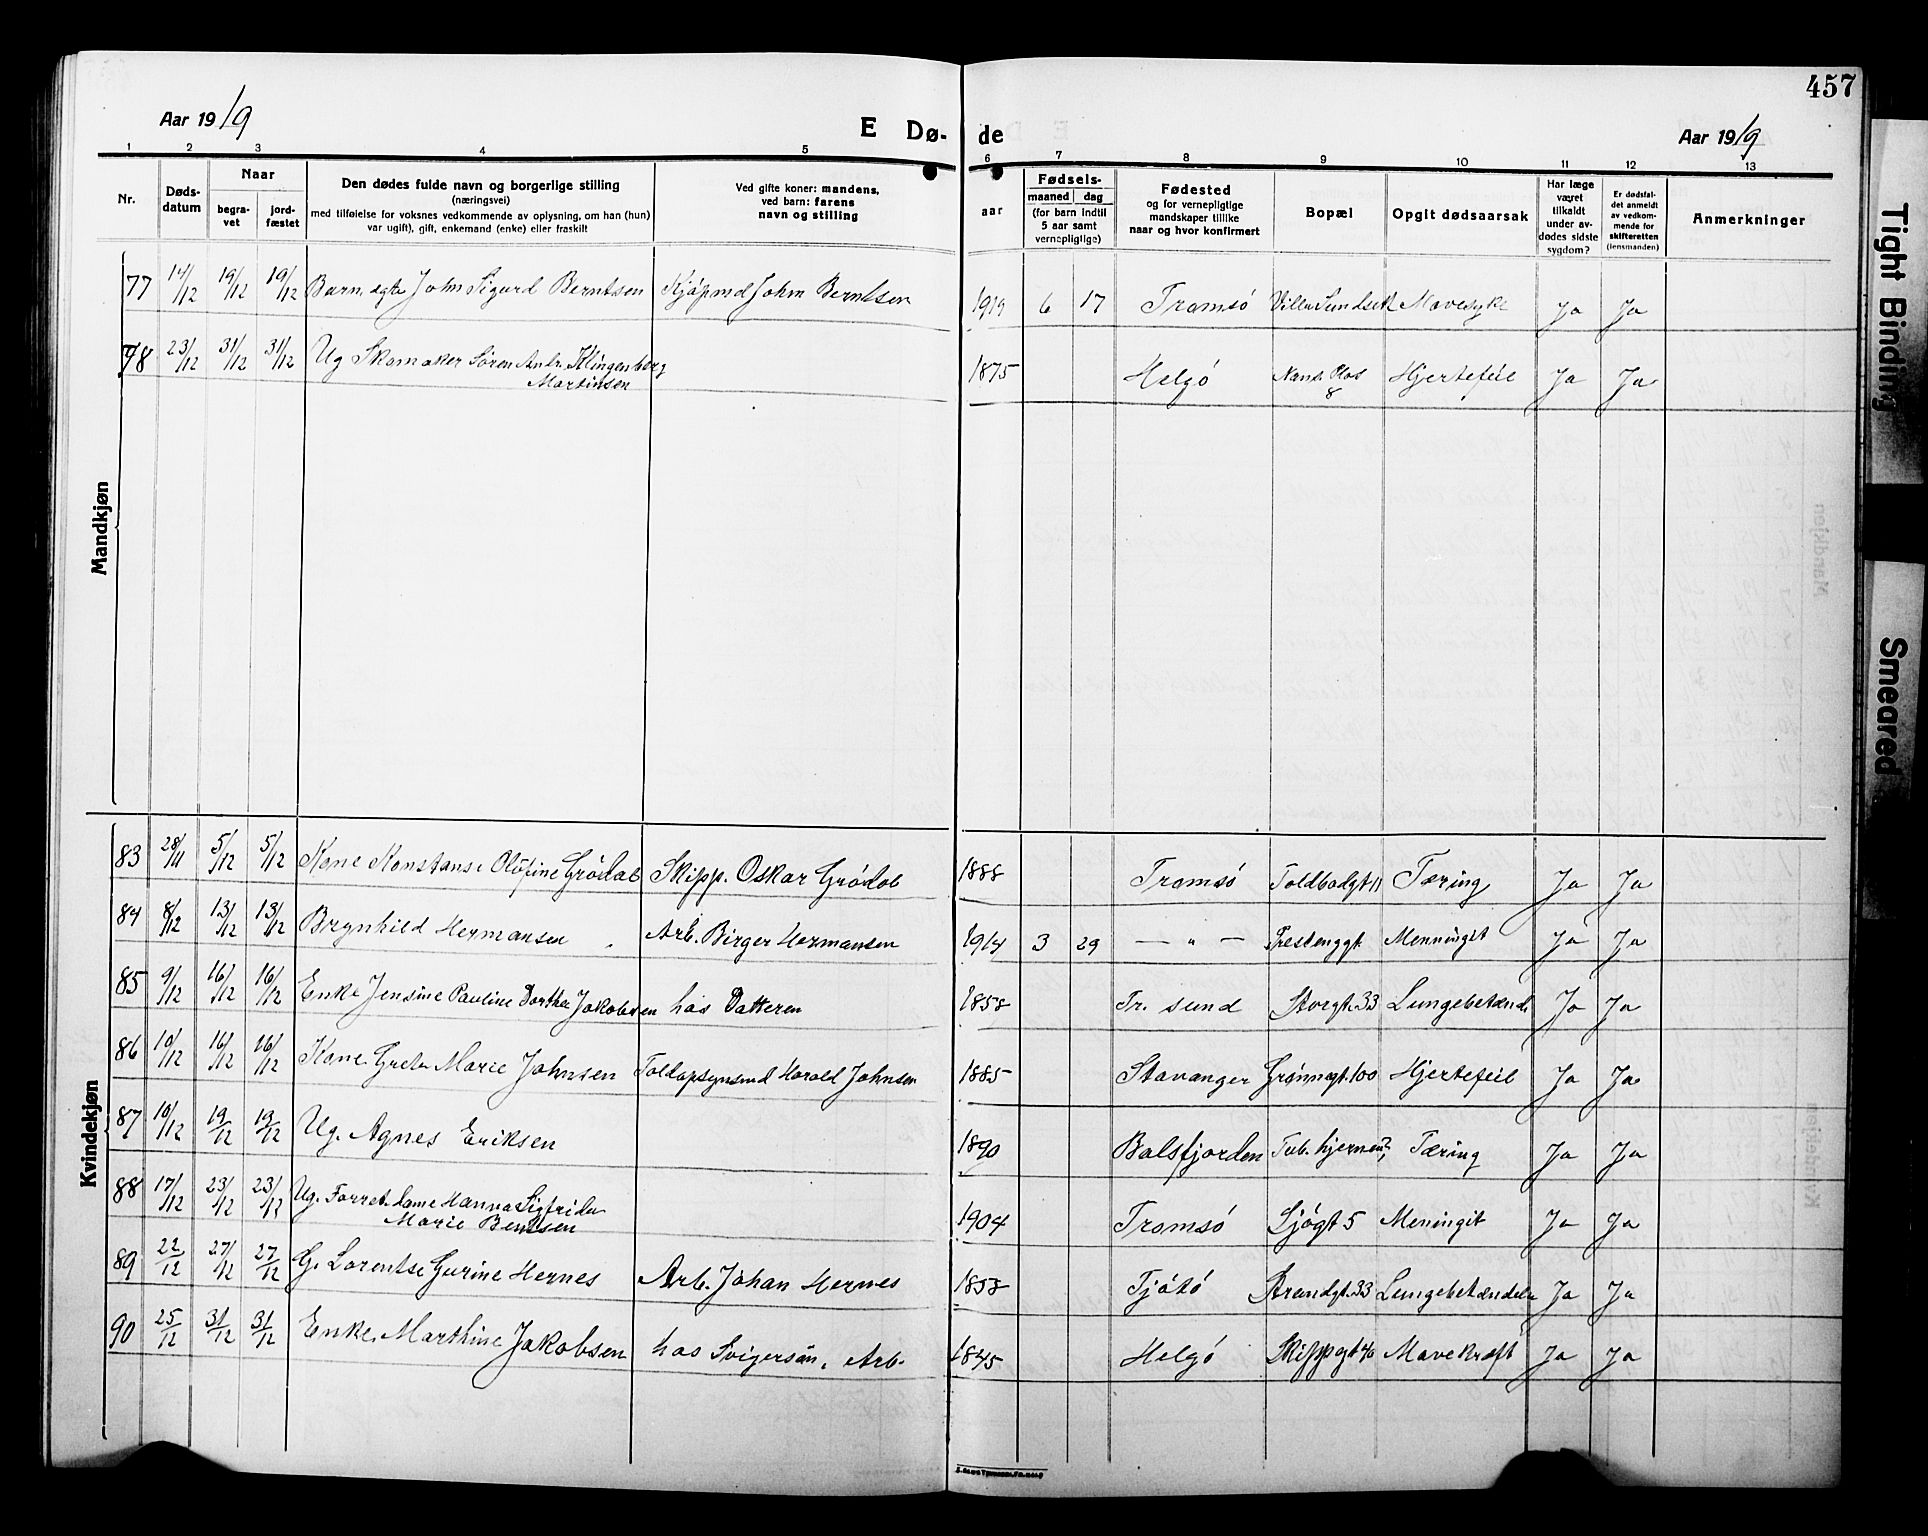 457
Aar 1919
E Dø-
de
Aar 1919
1 2 3 4 5 6 7 8 9 10 11 12 13
Nr.
Døds-
datum
Naar
begra-
vet
jord-
fæstet
Den dødes fulde navn og borgerlige stilling
(næringsvei)
med tilføielse for voksnes vedkommende av oplysning, om han (hun)
var ugift), gift, enkemand (enke) eller fraskilt
Ved gifte koner: mandens,
ved barn: farens
navn og stilling
Fødsels-
aar
maaned
dag
(for barn indtil
5 aar samt
vernepligtige)
Fødested
og for vernepligtige
mandskaper tillike
naar og hvor konfirmert
Bopæl
Opgit dødsaarsak
Har læge
været
tilkaldt
under av-
dødes sidste
sygdom?
Er dødsfal-
det anmeldt
av vedkom-
mende for
skifteretten
(lensmanden)
Anmerkninger
Mandkjøn
77 14/12 19/12 19/12 Barn, egte John Sigurd Berntsen Kjøpmd John Berntsen 1919 6 17 Tromsø Villa Sundsett Mavesyke Ja Ja
78 23/12 31/12 31/12 Ug Skomaker Søren Andr. Klingenberg
Martinsen 1875 Helgø Nans. Plas
8 Hjertefeil Ja Ja
Kvindekjøn
83 28/11 5/12 5/12 Kone Konstanse Olöfine Grødal Skipp. Oskar Grødal 1888 Tromsø Toldbodgt 11 Tæring Ja Ja
84 8/12 13/12 13/12 Brynhild Hermansen Arb. Birger Hermansen 1914 3 29 — " — Menningit Ja Ja
85 9/12 16/12 16/12 Enke Jensine Pauline Dorthea Jakobsen hos Datteren 1858 Tr. sund Storgt. 33 Lungebetænd. Ja Ja
86 10/12 16/12 16/12 Kone Grete Marie Johnsen Toldopsynsmd Harald Johnsen 1885 Stavanger Grønnegt. 100 Hjertefeil Ja Ja
87 10/12 19/12 19/12 Ug. Agnes Eriksen 1890 Balsfjorden Tub. hjemmet Tæring Ja Ja
88 17/12 23/12 23/12 Ug. Forret. dame Hanna Sigfrida
Marie Bentsen 1904 Tromsø Sjøgt 5 Meningit Ja Ja
89 22/12 27/12 27/12 G. Lorentse Gurine Hernes Arb. Johan Hernes 1858 Tjøtø Strandgt. 33 Lungebetændelse Ja Ja
90 25/12 31/12 31/12 Enke, Marthine Jakobsen hos Svigersøn, Arb. 1845 Helgø Skippgt 40 Mavekræft Ja Ja
Tight Binding
Smeared